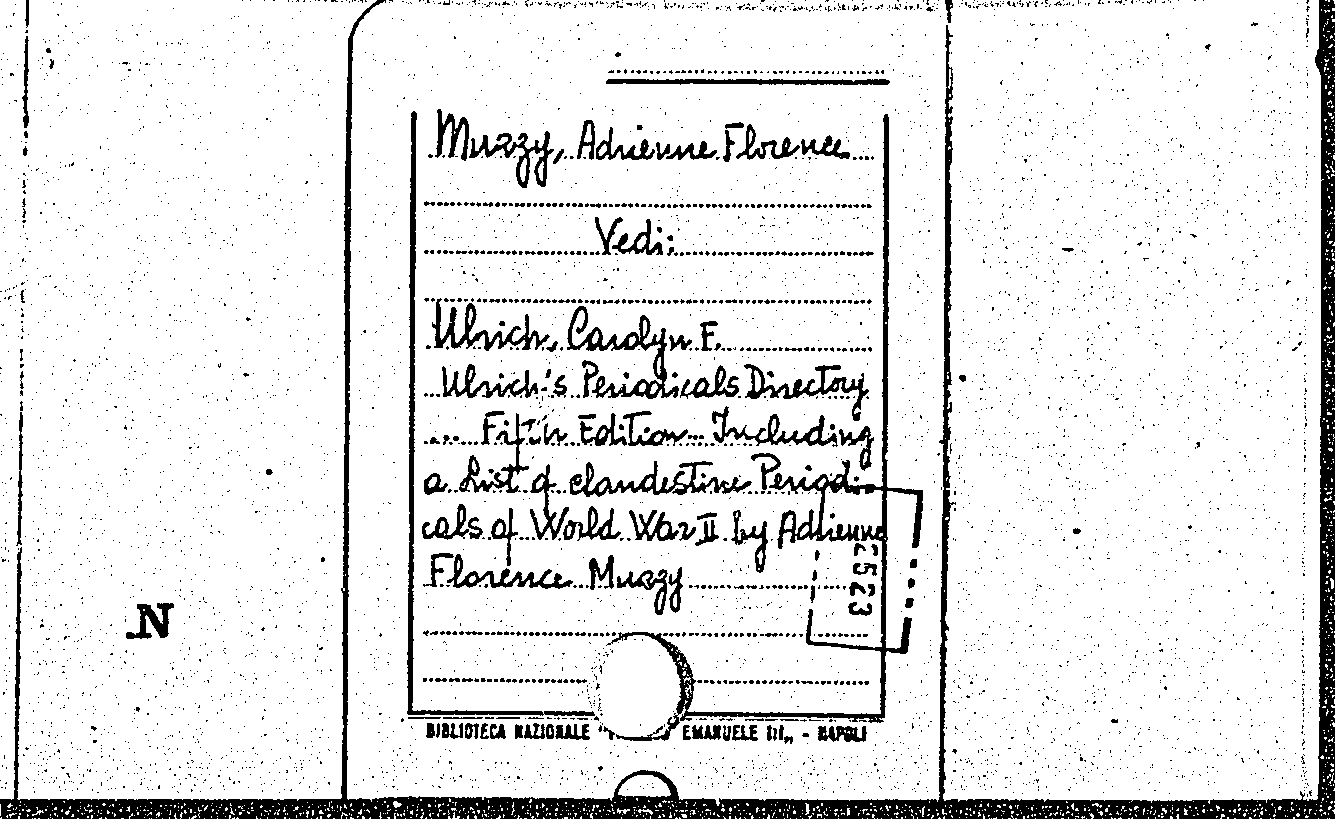 Muzzy, Adrienne Florence
Vedi:
Ulrich, Carolyn F.
Ulrich's Periodicals Directory
... Fifth Edition... Including
a List of clandestine Periodi-
cals of World War II by Adrienne
Florence Muzzy
2523
.N
BIBLIOTECA NAZIONALE " EMANUELE III„ - NAPOLI